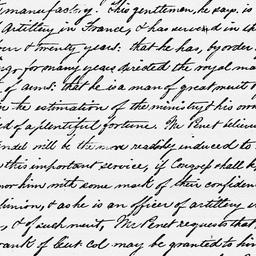 manufactory. This gentleman, he says, is
Artillery in France, & has served in th
four & twenty years: that he has, by order
ing, for many years directed the royal ma
of arms: that he is a man of great merit &
in the estimation of the ministry & his own
ed of a plentiful fortune. Mr Penet believe
indel will be the more readily induced to
this important service, if Congress shall ho
nor him with some mark of their confidence
pinion, & as he is an officer of artillery in
s & of such merit, Mr Penet requests that
rank of Lieut Col may be granted to him